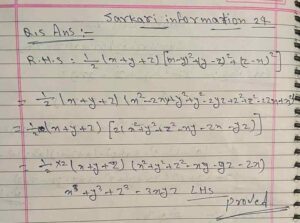 Sarkari information 24
Q.5 Ans:-
R.H.S = 1/2 (x+y+z) [(x-y)²+(y-z)²+(z-x)²]
= 1/2 (x+y+z) (x²-2xy+y²+y²-2yz+z²+z²-2zx+x²)
= 1/2 (x+y+z) [2(x²+y²+z²-xy-zx-yz)]
= 1/2 ×2 (x+y+z) (x²+y²+z²-xy-yz-zx)
x³+y³+z³-3xyz LHS
proved